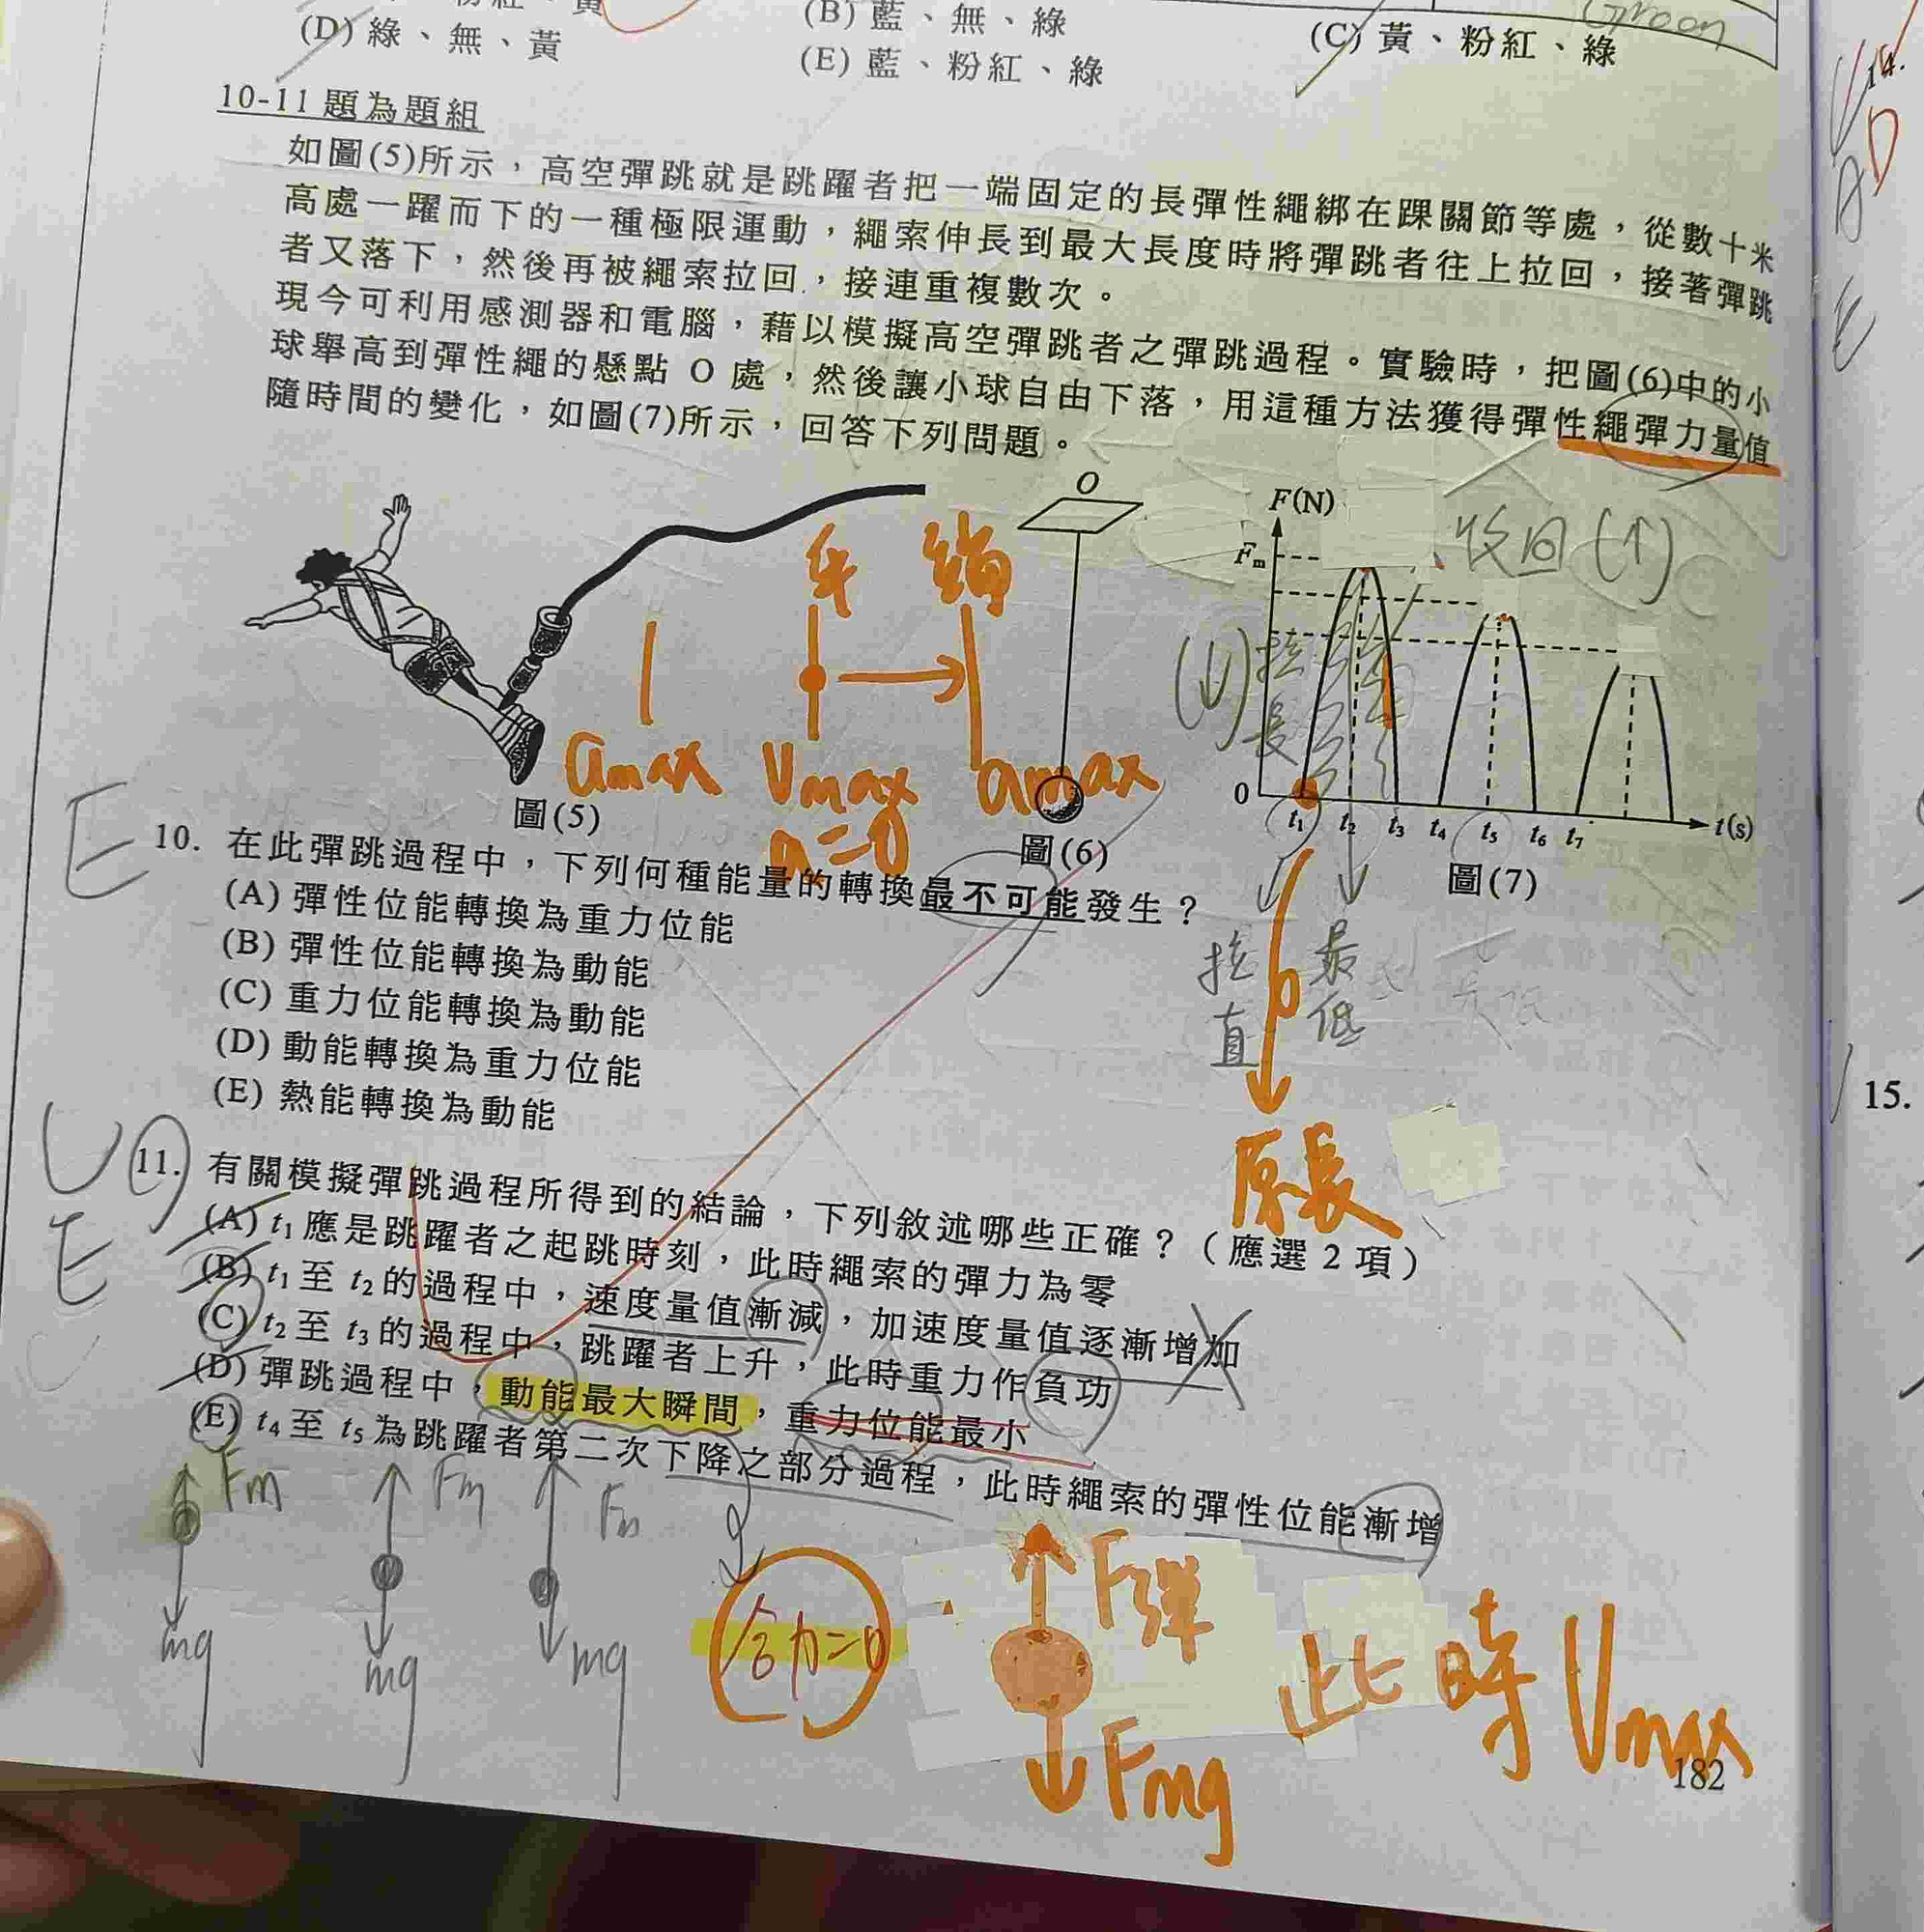 (D) 綠、無、黃
(B) 藍、無、綠
(E) 藍、粉紅、綠
(C) 黃、粉紅、綠
Green
14.
D
10-11 題為題組
如圖(5)所示，高空彈跳就是跳躍者把一端固定的長彈性繩綁在踝關節等處，從數十米
高處一躍而下的一種極限運動，繩索伸長到最大長度時將彈跳者往上拉回，接著彈跳
者又落下，然後再被繩索拉回，接連重複數次。
現今可利用感測器和電腦，藉以模擬高空彈跳者之彈跳過程。實驗時，把圖(6)中的小
球舉高到彈性繩的懸點 O 處，然後讓小球自由下落，用這種方法獲得彈性繩彈力量值
隨時間的變化，如圖(7)所示，回答下列問題。
O
F(N)
Fm
收回(↑)
(↓)拉長
amax
Vmax
a=0
amax
0
t1 t2 t3 t4 t5 t6 t7
t(s)
圖(5)
圖(6)
圖(7)
拉直
最低
原長
E
10. 在此彈跳過程中，下列何種能量的轉換最不可能發生？
(A) 彈性位能轉換為重力位能
(B) 彈性位能轉換為動能
(C) 重力位能轉換為動能
(D) 動能轉換為重力位能
(E) 熱能轉換為動能
E
11. 有關模擬彈跳過程所得到的結論，下列敘述哪些正確？（應選 2 項）
(A) t1 應是跳躍者之起跳時刻，此時繩索的彈力為零
(B) t1 至 t2 的過程中，速度量值漸減，加速度量值逐漸增加
(C) t2 至 t3 的過程中，跳躍者上升，此時重力作負功
(D) 彈跳過程中，動能最大瞬間，重力位能最小
(E) t4 至 t5 為跳躍者第二次下降之部分過程，此時繩索的彈性位能漸增
Fm
mg
Fm
mg
Fm
mg
合力=0
F彈
Fmg
此時Vmax
182
15.